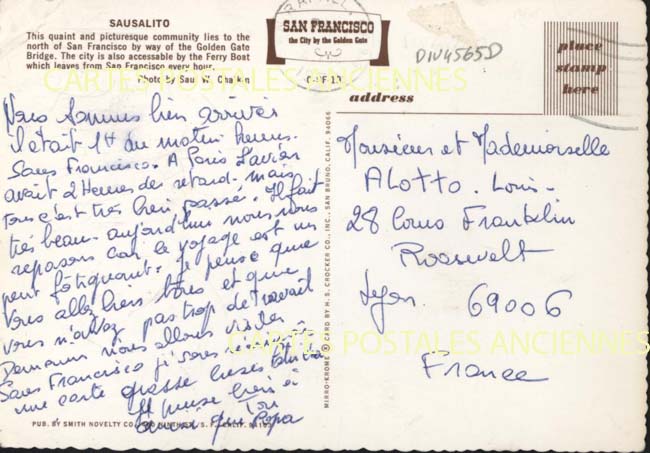 SAUSALITO
This quaint and picturesque community lies to the
north of San Francisco by way of the Golden Gate
Bridge. The city is also accessable by the Ferry Boat
which leaves from San Francisco every hour.
Photo by Saul W. Chaikin
SAN FRANCISCO
the City by the Golden Gate
DIV4565D
place
stamp
here
address
CARTES POSTALES ANCIENNES
Nous sommes bien arrivés
il était 1H du matin heures
Sans Francisco. A Paris l'avion
avait 2 Heures de retard. mais
tous c'est très bien passé. Il fait
très beau. aujourd'hui nous nous
reposons car le voyage est un
peut fatiguant. je pense que
Vous allez bien tous et que
vous n'avez pas trop de travail
Demain nous allons visiter
Sans Francisco
une carte grosse bises
pense bien à
Toi
que Papa
Monsieur et Mademoiselle
ALOTTO. Louis.
28 Cours Franklin
Roosevelt
Lyon. 69006
France
CARTES POSTALES ANCIENNES
MIRRO-KROME ® CARD BY H. S. CROCKER CO., INC., SAN BRUNO, CALIF. 94066
PUB. BY SMITH NOVELTY CO. S. F. CALIF.